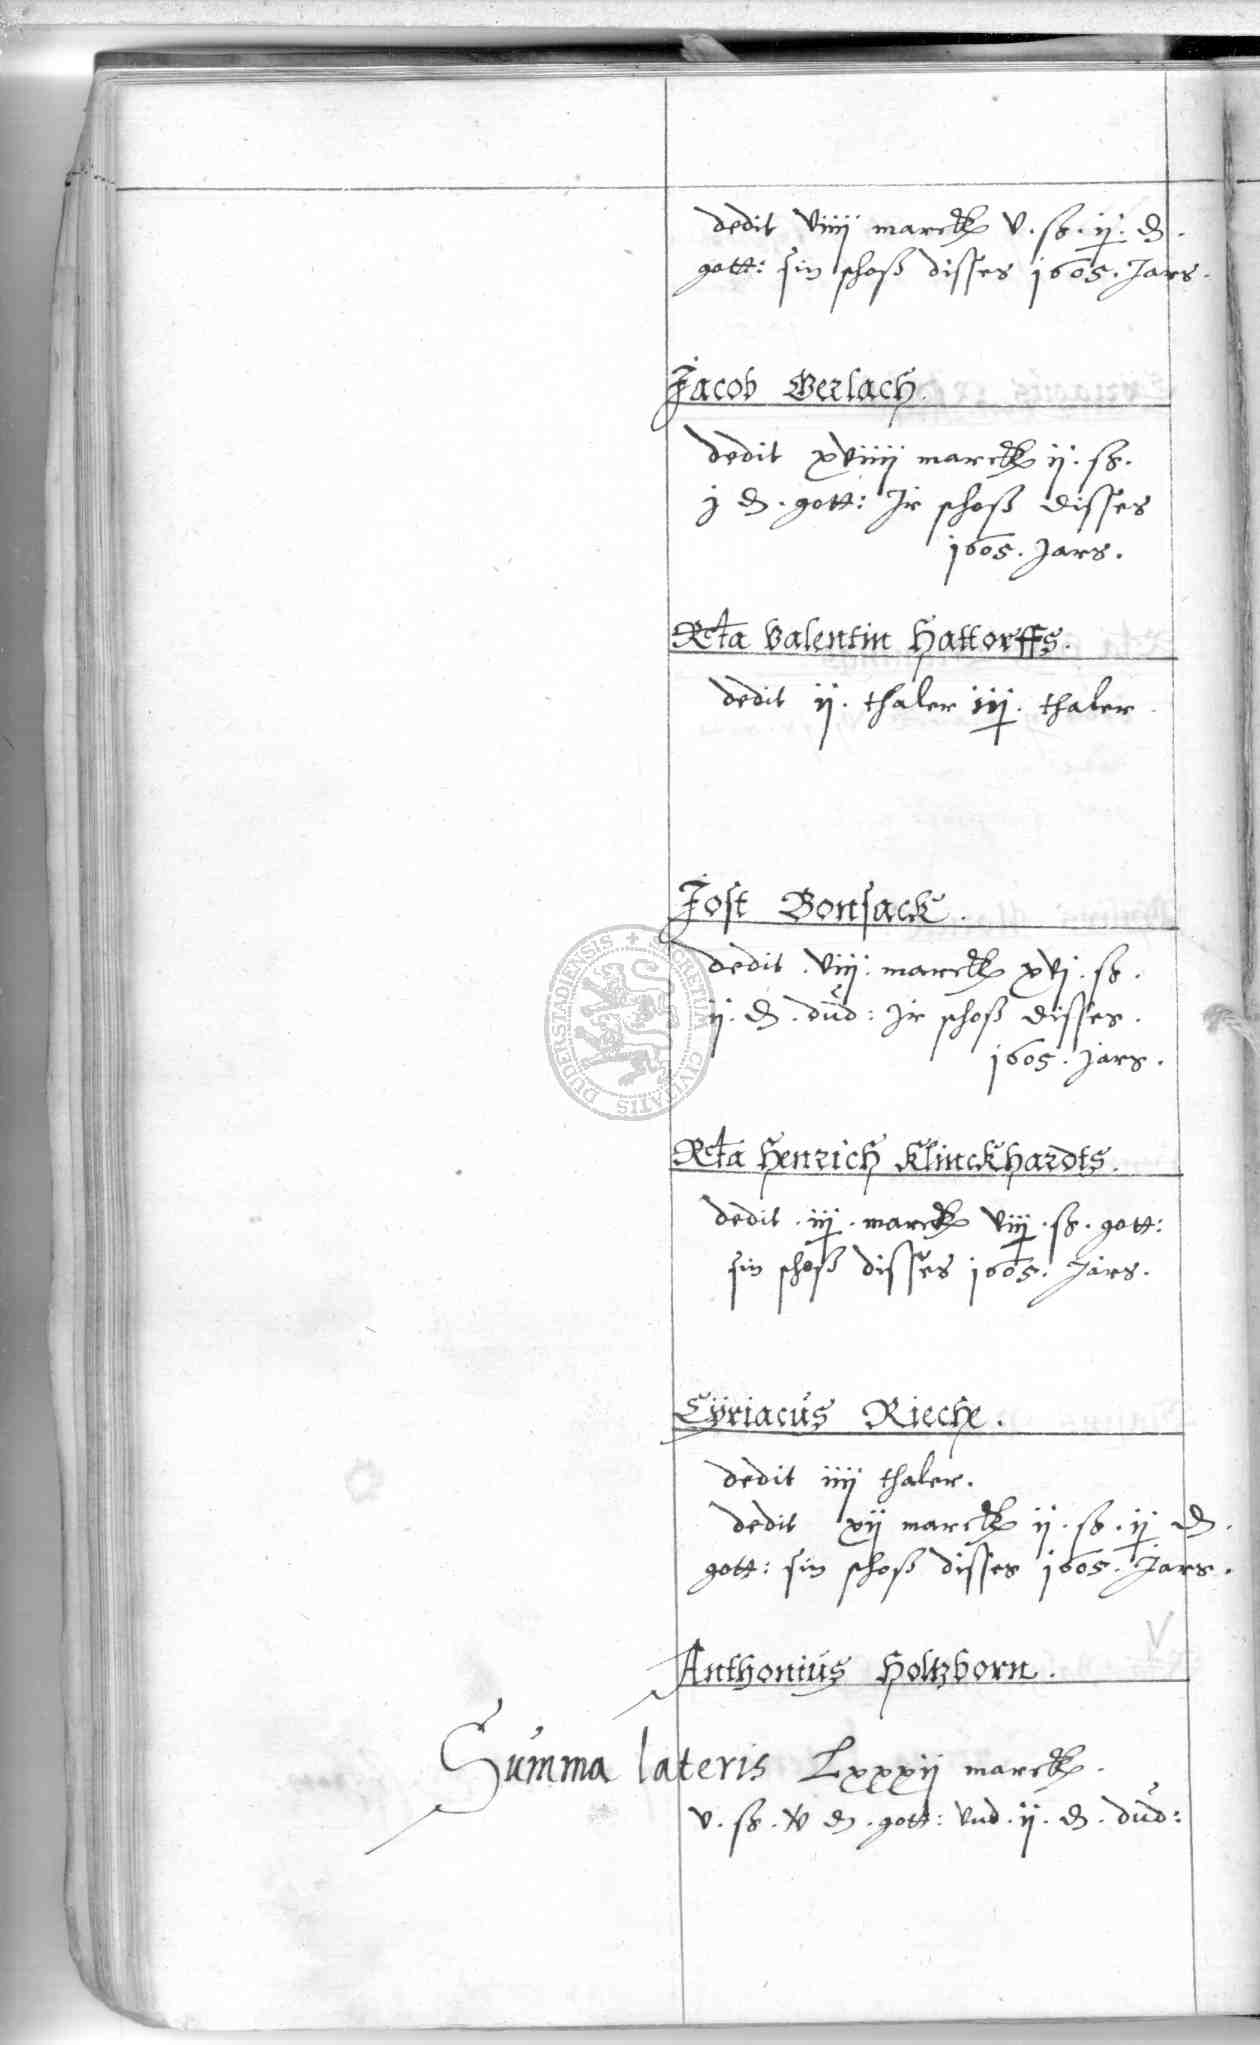 dedit viiij marck v. ß. ij. d.
gott: sin schoß disses 1605. Jars.
Jacob Gerlach.
dedit xviiij marck ij. ß.
j d. gott: Ir schoß disses
1605. Jars.
Rcta Valentin Hattorffs.
dedit ij. thaler iij. thaler
Jost Bonsack.
dedit . viij. marck xvj. ß.
ij. d. dud: Ir schoß disses.
1605. Jars.
Rcta Henrich Klinckhardts.
dedit . iij. marck viij. ß. gott:
sin schoß disses 1605. Jars.
Cÿriacus Rieche.
dedit iiij thaler.
dedit xij marck ij. ß. ij d.
gott: sin schoß disses 1605. Jars.
Anthonius Holtzborn.
Summa lateris Lxxxij marck.
v. ß. d. gott: vnd. ij. d. dud:
SECRETUM CIVITATIS DUDERSTADIENSIS